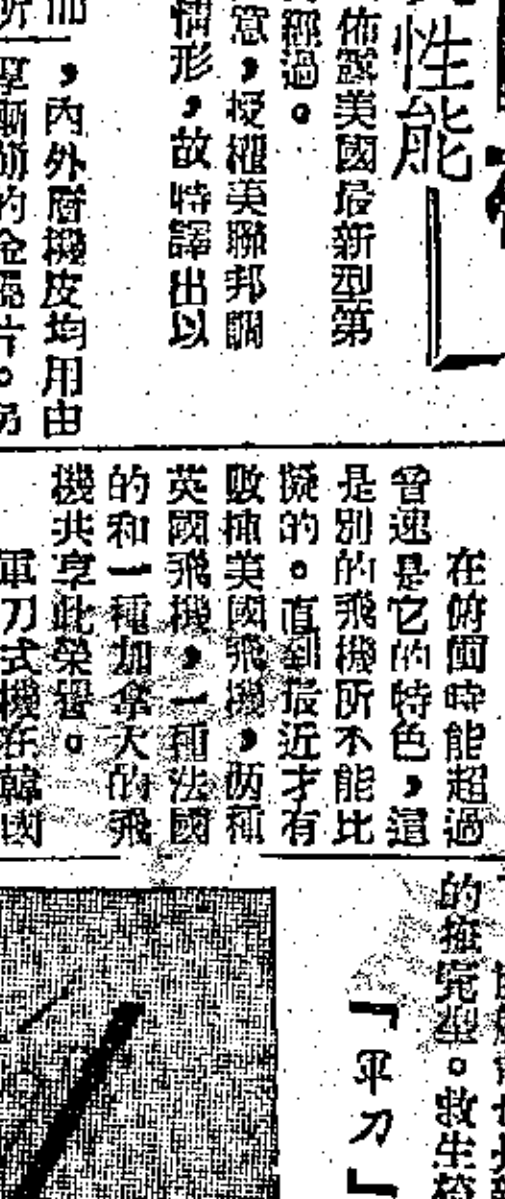 性能
佈露美國最新型第
經過。
意，授權美聯邦調
情形，故特譯出以
，內外層機皮均用由
的金屬片。另
在俯衝時能超過
音速是它的特色，這
是別的飛機所不能比
擬的。直到最近才有
數種美國飛機，兩種
英國飛機，一種法國
的和一種加拿大的飛
機共享此榮譽。
軍刀式機在韓國
的 。救生
『軍刀』